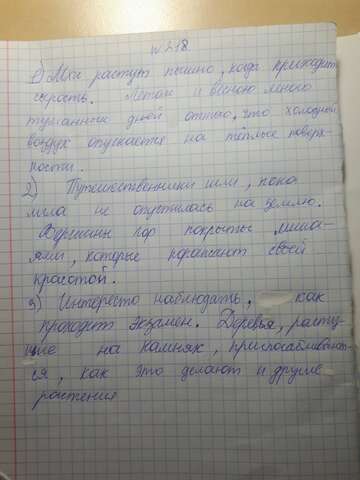 № 218.
1) Мхи растут пышно, когда приходит
сырость. Летом и весною много
туманных дней оттого, что холодный
воздух опускается на тёплые поверх-
ности.
2) Путешественники шли, пока
мгла не опустилась на землю.
Вершины гор покрыты лиша-
ями, которые поражают своей
красотой.
3) Интересно наблюдать, как
проходит экзамен. Деревья, расту-
щие на камнях, приспосаблива-
ся, как это делают и другие
растения